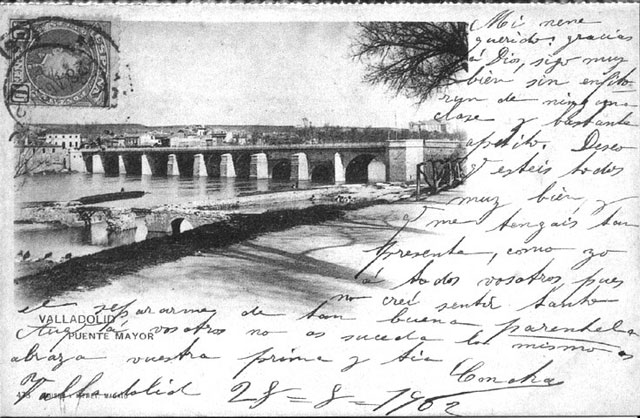 Mi nene
querido: gracias
á Dios, sigo muy
bien sin
de ninguna
clase y bastante
apetito. Deseo
q esteis todos
muy bien y
q me tengais tan
presente, como yo
á todos vosotros pues
no creí sentir tanto
el separarme de tan buena parentela
á vosotros no os suceda lo mismo
abraza vuestra prima y tia
Concha
Valladolid 28=8=1902
VALLADOLID
PUENTE MAYOR